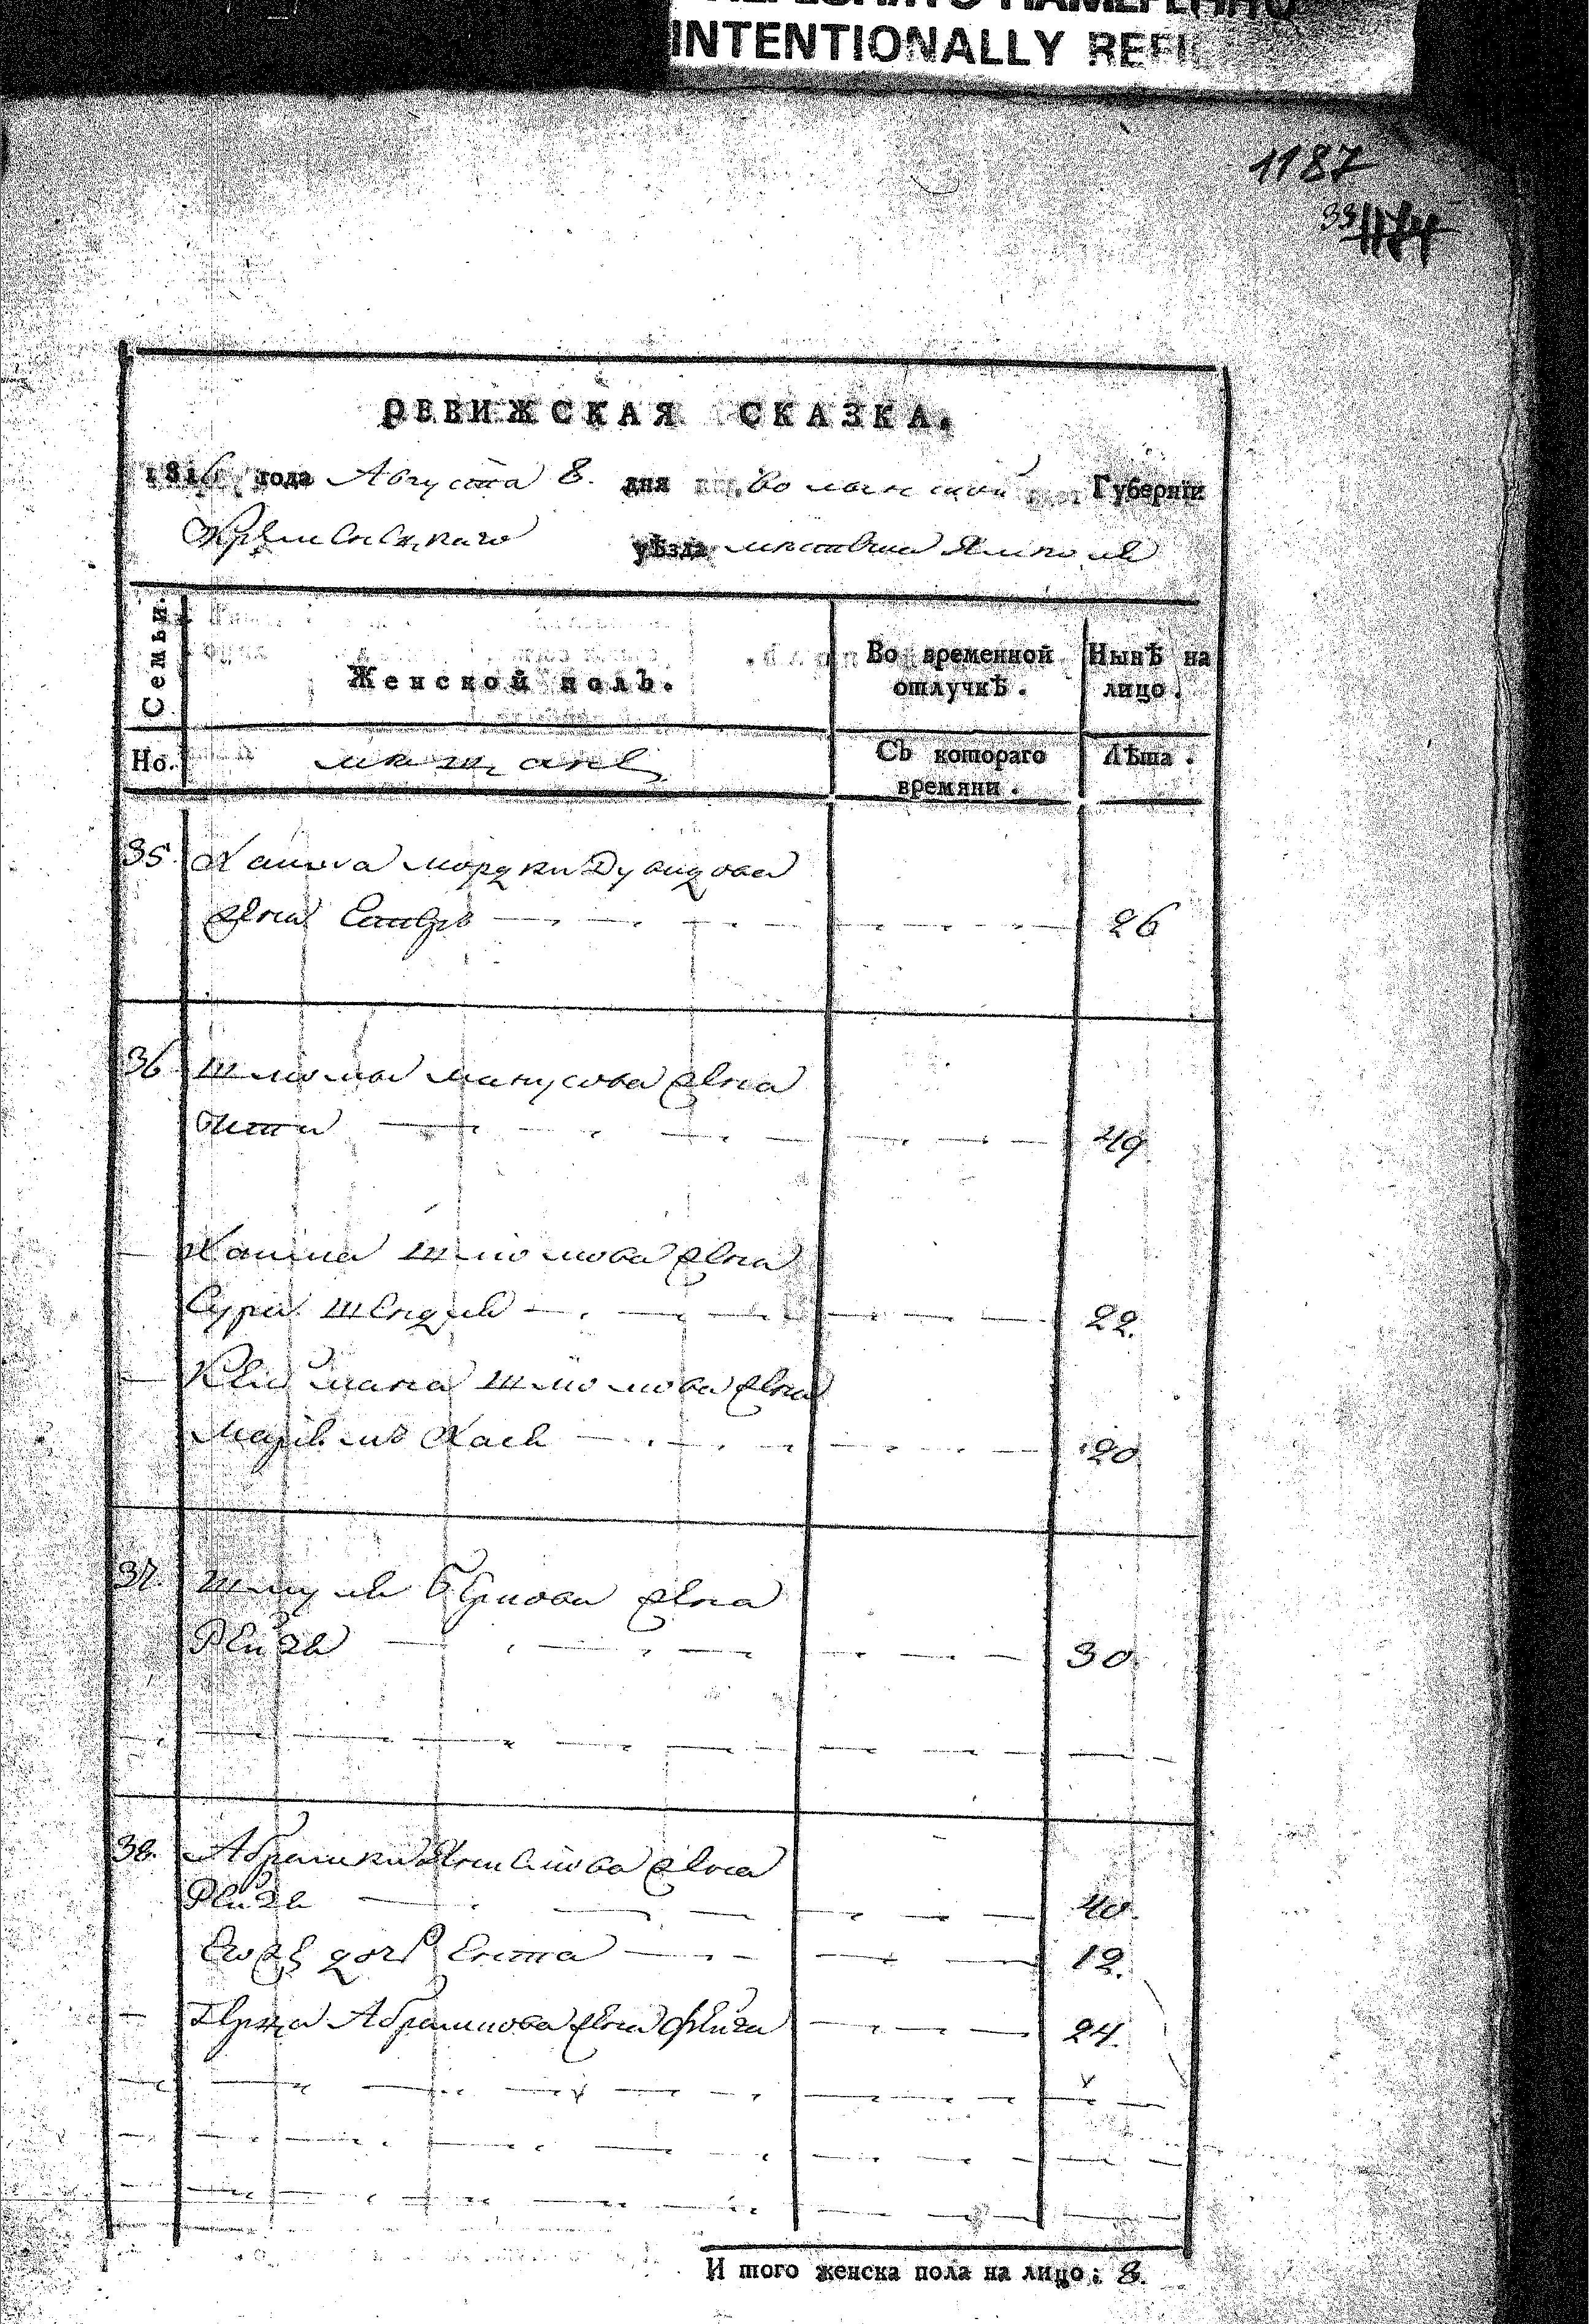 INTENTIONALLY REFI
1187
33 1174
РЕВИЖСКАЯ СКАЗКА.
1816 года Августа 8. дня Волынской Губернїи
Кременецкаго уѣзда местечка Ямполя
Семьи.
Женской полъ.
Во временной отлучкѣ.
Нынѣ на лицо.
Но.
мещане
Съ котораго времяни.
Лѣта.
35. Хаима мордки Дувидова
жена Естеръ 26
36 Шлиомы манусова жена
Ита 49
Хаима шлиомова жена
Сура шендля 22.
Клеймана шлиомова жена
Хася 20
37. шмуля Беркова жена
Рейзя 30.
38. Абрамки жена
Рейзя 40.
Еюзъ дочь Ента 12.
Абрамкова жена Фейга 24.
И того женска пола на лицо: 8.